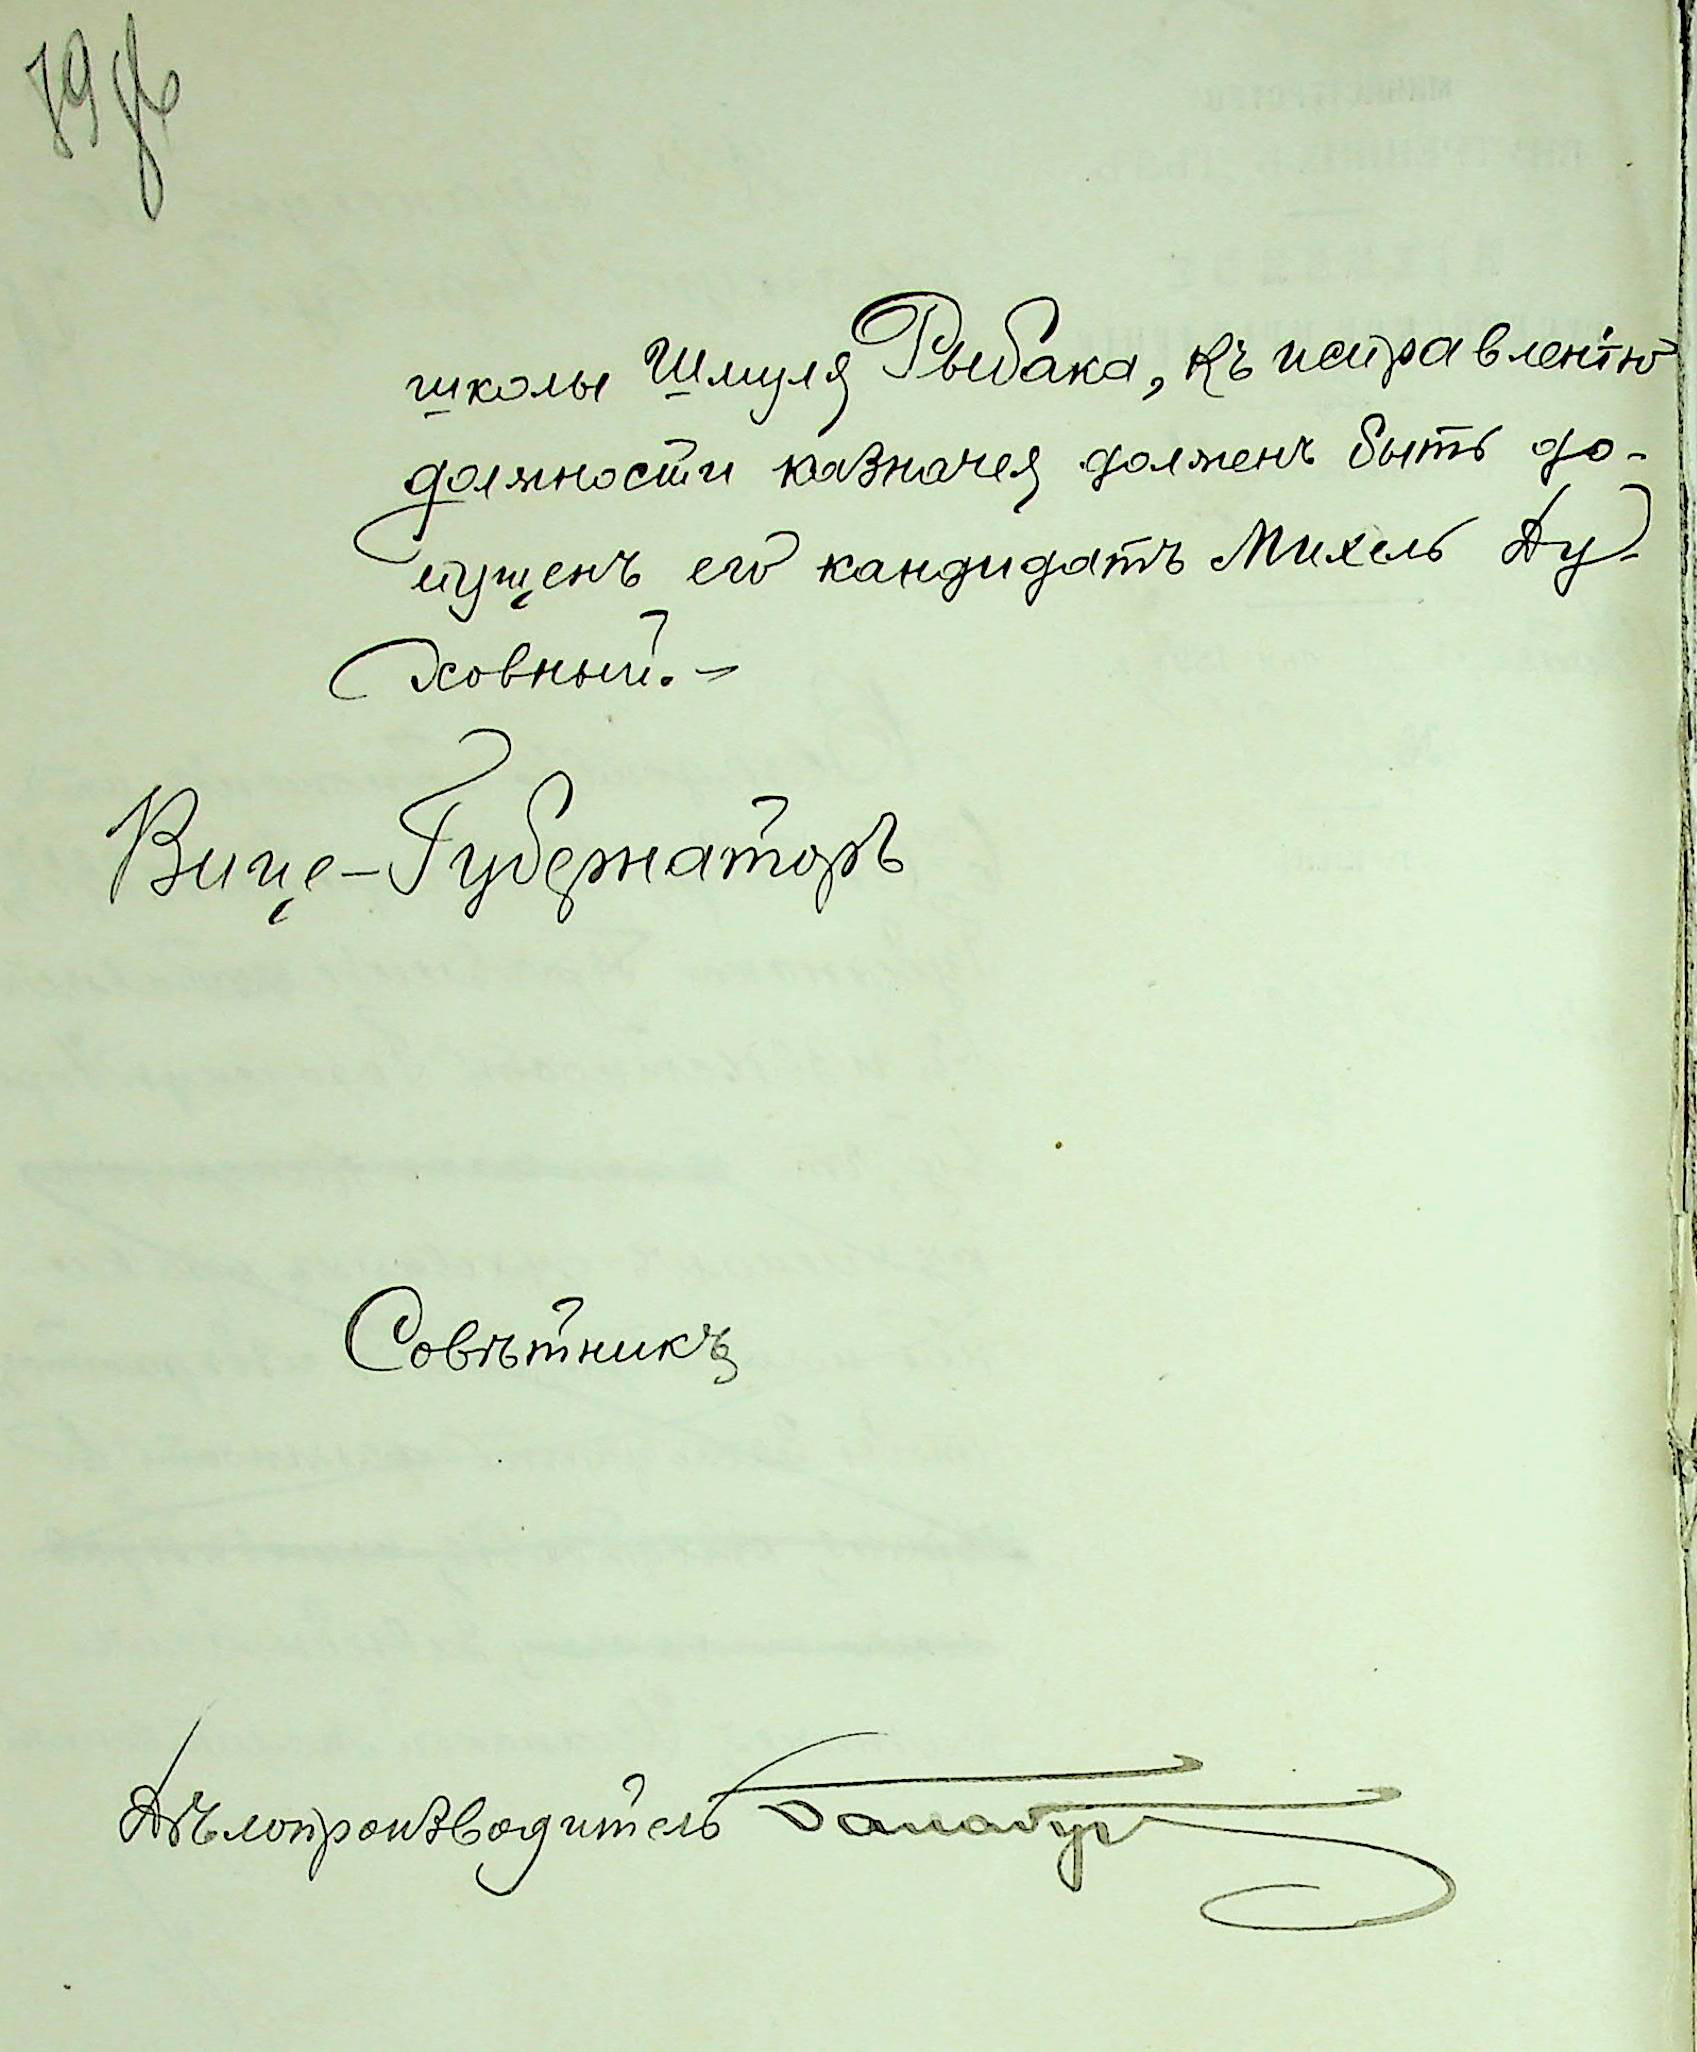 79 об
школы Шмуля Рыбака, къ исправленію
должности казначея долженъ быть до-
пущенъ его кандидатъ Михель Ду-
ховный.—
Вице-Губернаторъ
Совѣтникъ
Дѣлопроизводитель